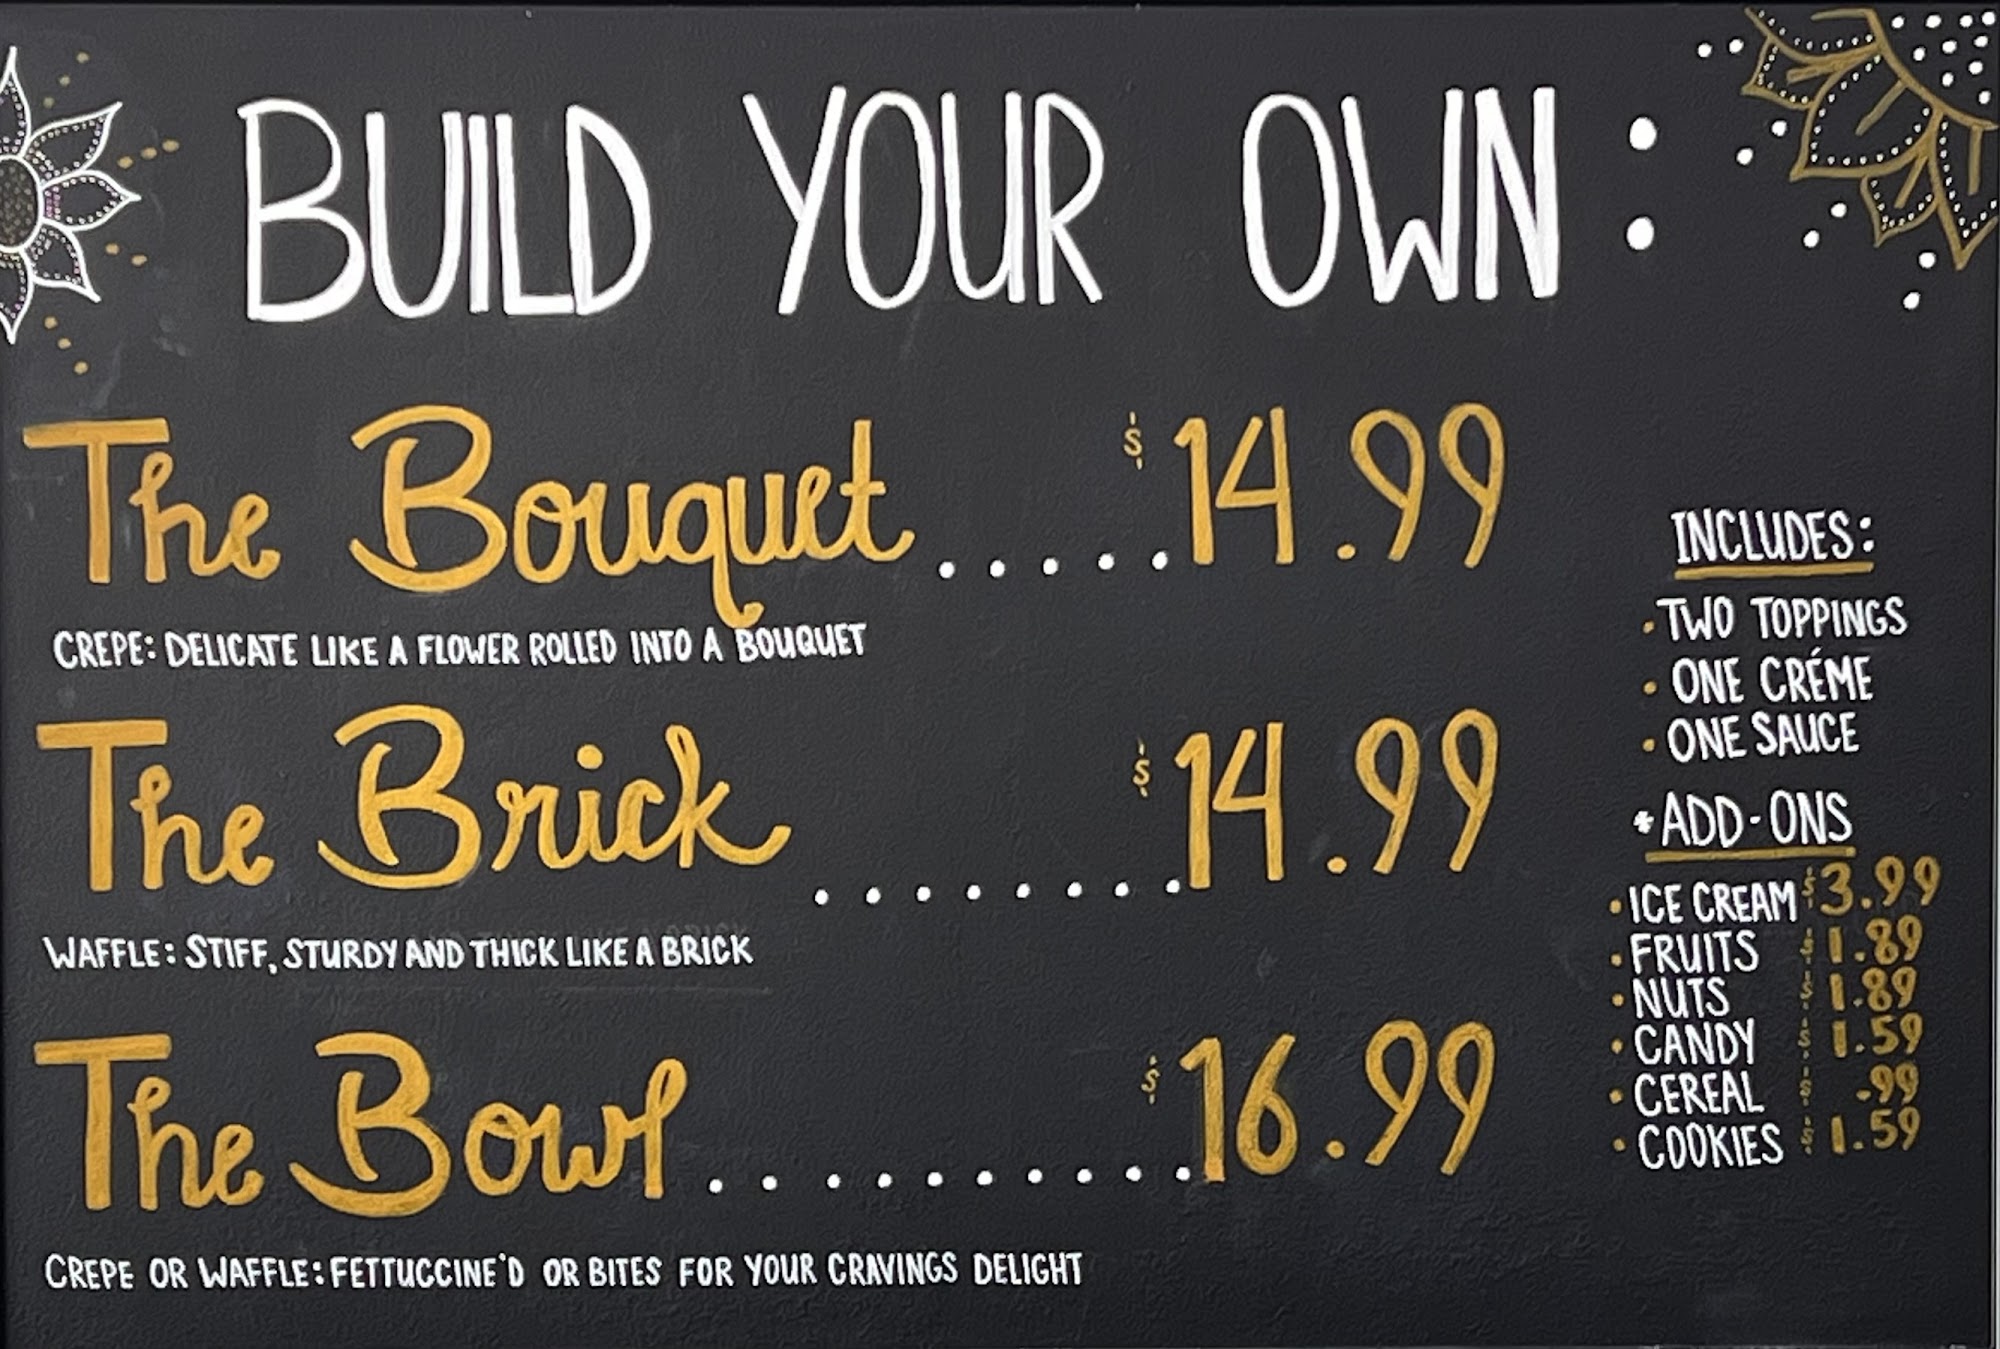 BUILD YOUR OWN:
The Bouquet.....$14.99
CREPE: DELICATE LIKE A FLOWER ROLLED INTO A BOUQUET
The Brick ........$14.99
WAFFLE: STIFF, STURDY AND THICK LIKE A BRICK
The Bowl..........$16.99
CREPE OR WAFFLE: FETTUCCINE'D OR BITES FOR YOUR CRAVINGS DELIGHT
INCLUDES:
• TWO TOPPINGS
• ONE CRÉME
• ONE SAUCE
*ADD-ONS
• ICE CREAM $3.99
• FRUITS $1.89
• NUTS $1.89
• CANDY $1.59
• CEREAL $.99
• COOKIES $1.59